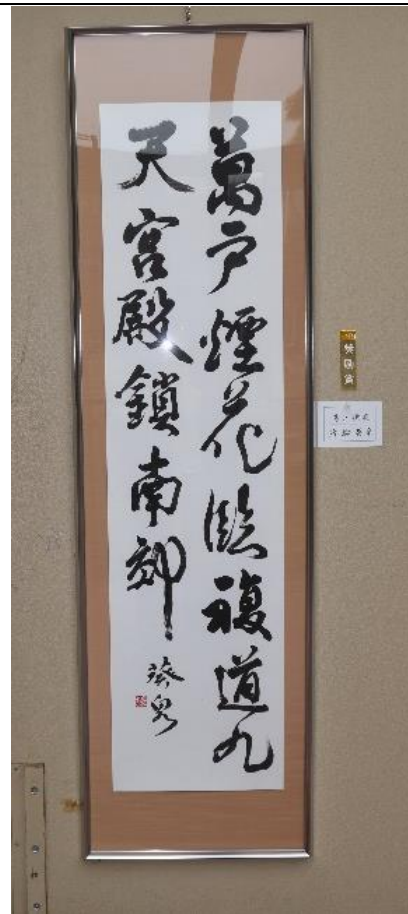 萬戸煙花臨複道九
天宮殿鎖南郊
奨励賞